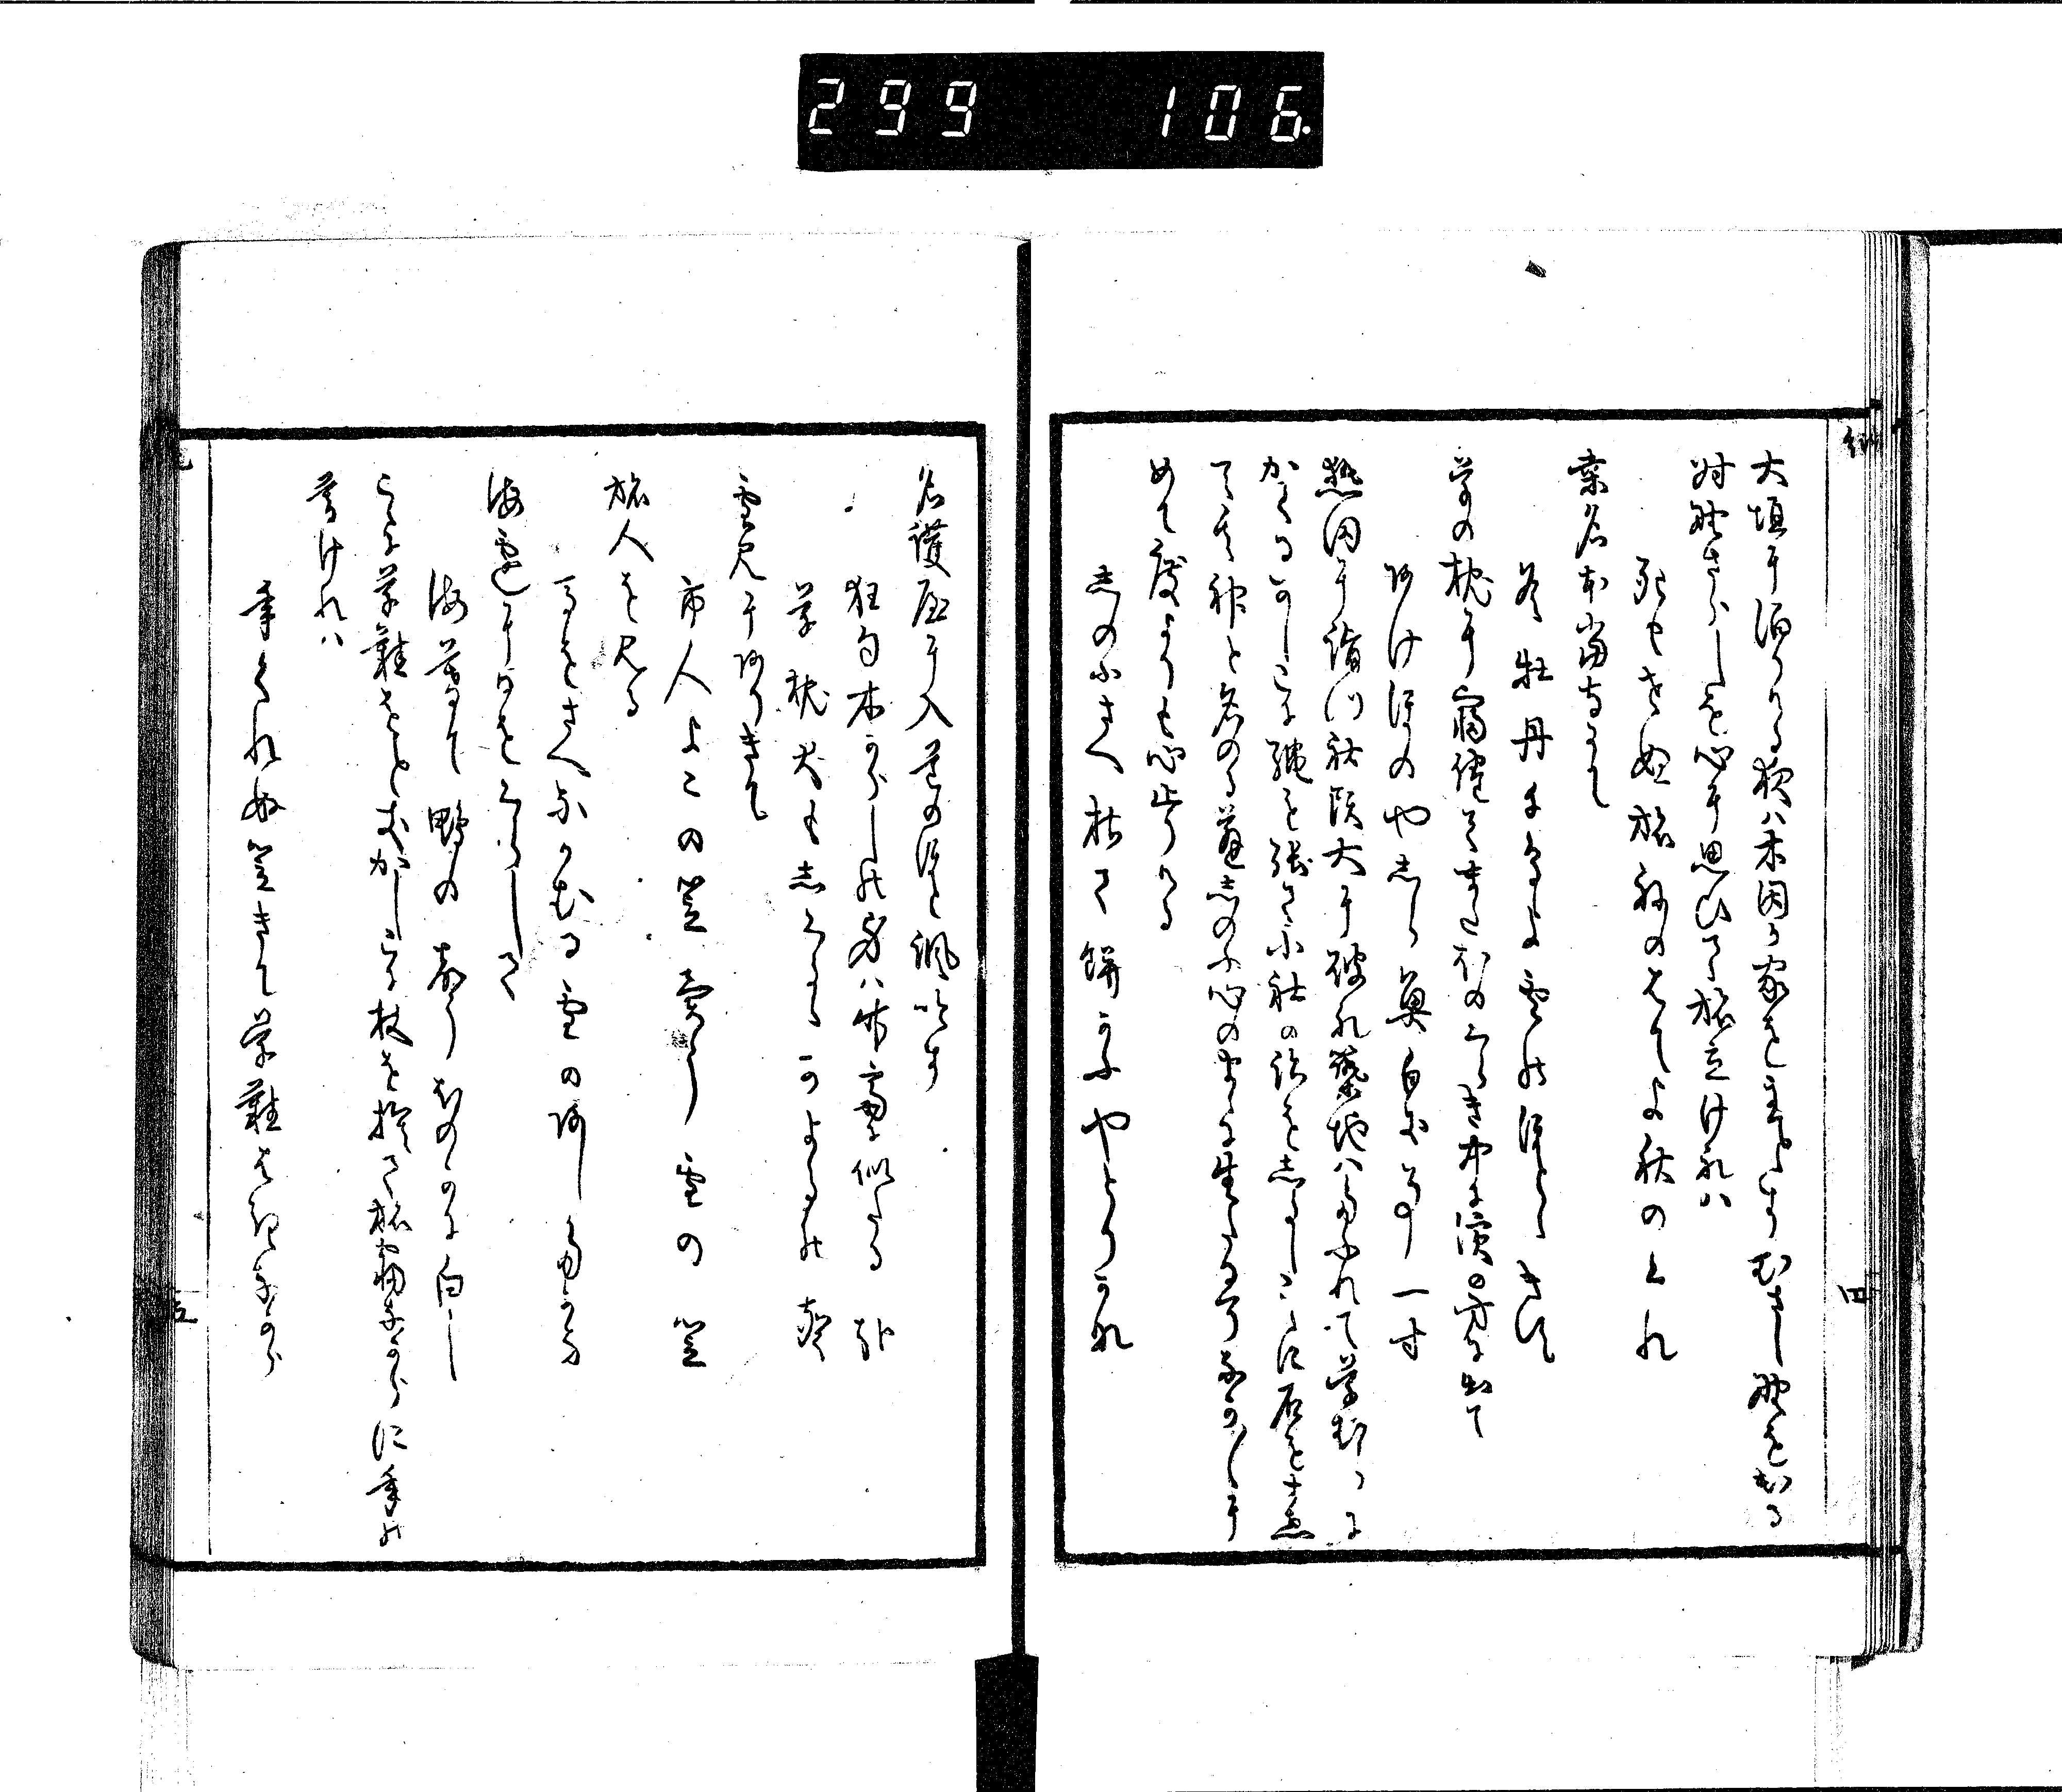 299 106
大垣に泊りける夜ハ木因か家をあるしとすむさし野を出る
時野さらしを心に思ひて旅立けれハ
死もせぬ旅ねのはてよ秋のくれ
桑名本當寺にて
冬牡丹千鳥よ雪のほとゝきす
草の枕に寐侘てまたほのくらき中に濱の方に出て
明けほのやしら魚白き事一寸
熱田に詣つ社頭大に破れ築地ハたふれて草村に
かくるかしこに縄を張て小社の跡をしるしこゝに石をすゑ
て其神と名のる蓬しのふ心のまゝに生たるそ中〱に
めて度よりも心止りける
しのふさへ枯て餅かふやとりかな
名護屋に入道のほと諷吟す
狂句木からしの身ハ竹斎に似たる哉
草枕犬も志くるゝかよるの聲
雪見にありきて
市人よこの笠賣う雪の笠
旅人を見る
馬をさへなかむる雪のあした哉
海邊に日をくらして
海暮て鴨の聲ほのかに白し
こゝに草鞋をときかしこに杖を捨て旅寐なからに年の
暮けれハ
年くれぬ笠きて草鞋はきなから